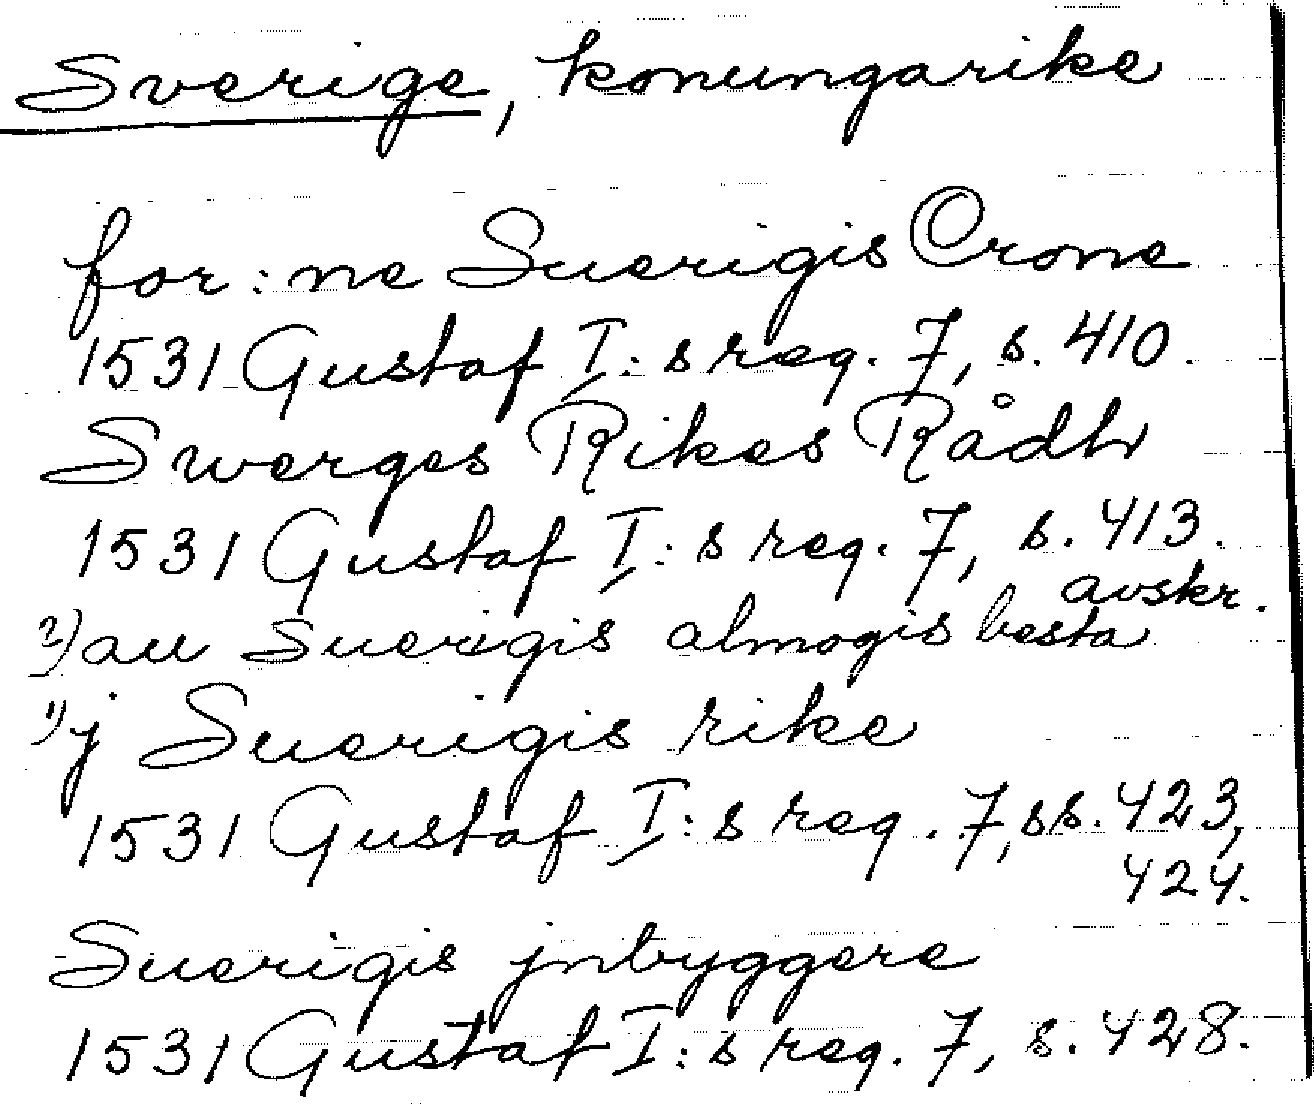 Sverige, konungarike
for:ne Suerigis Crone
1531 Gustaf I:s reg. 7, s. 410.
Swerges Rikes Rådh
1531 Gustaf I:s reg. 7, s. 413.
avskr.
2) au Suerigis almogis besta
1) j Suerigis rike
1531 Gustaf I:s reg. 7, ss. 423,
424.
Suerigis jnbyggere
1531 Gustaf I:s reg. 7, s. 428.